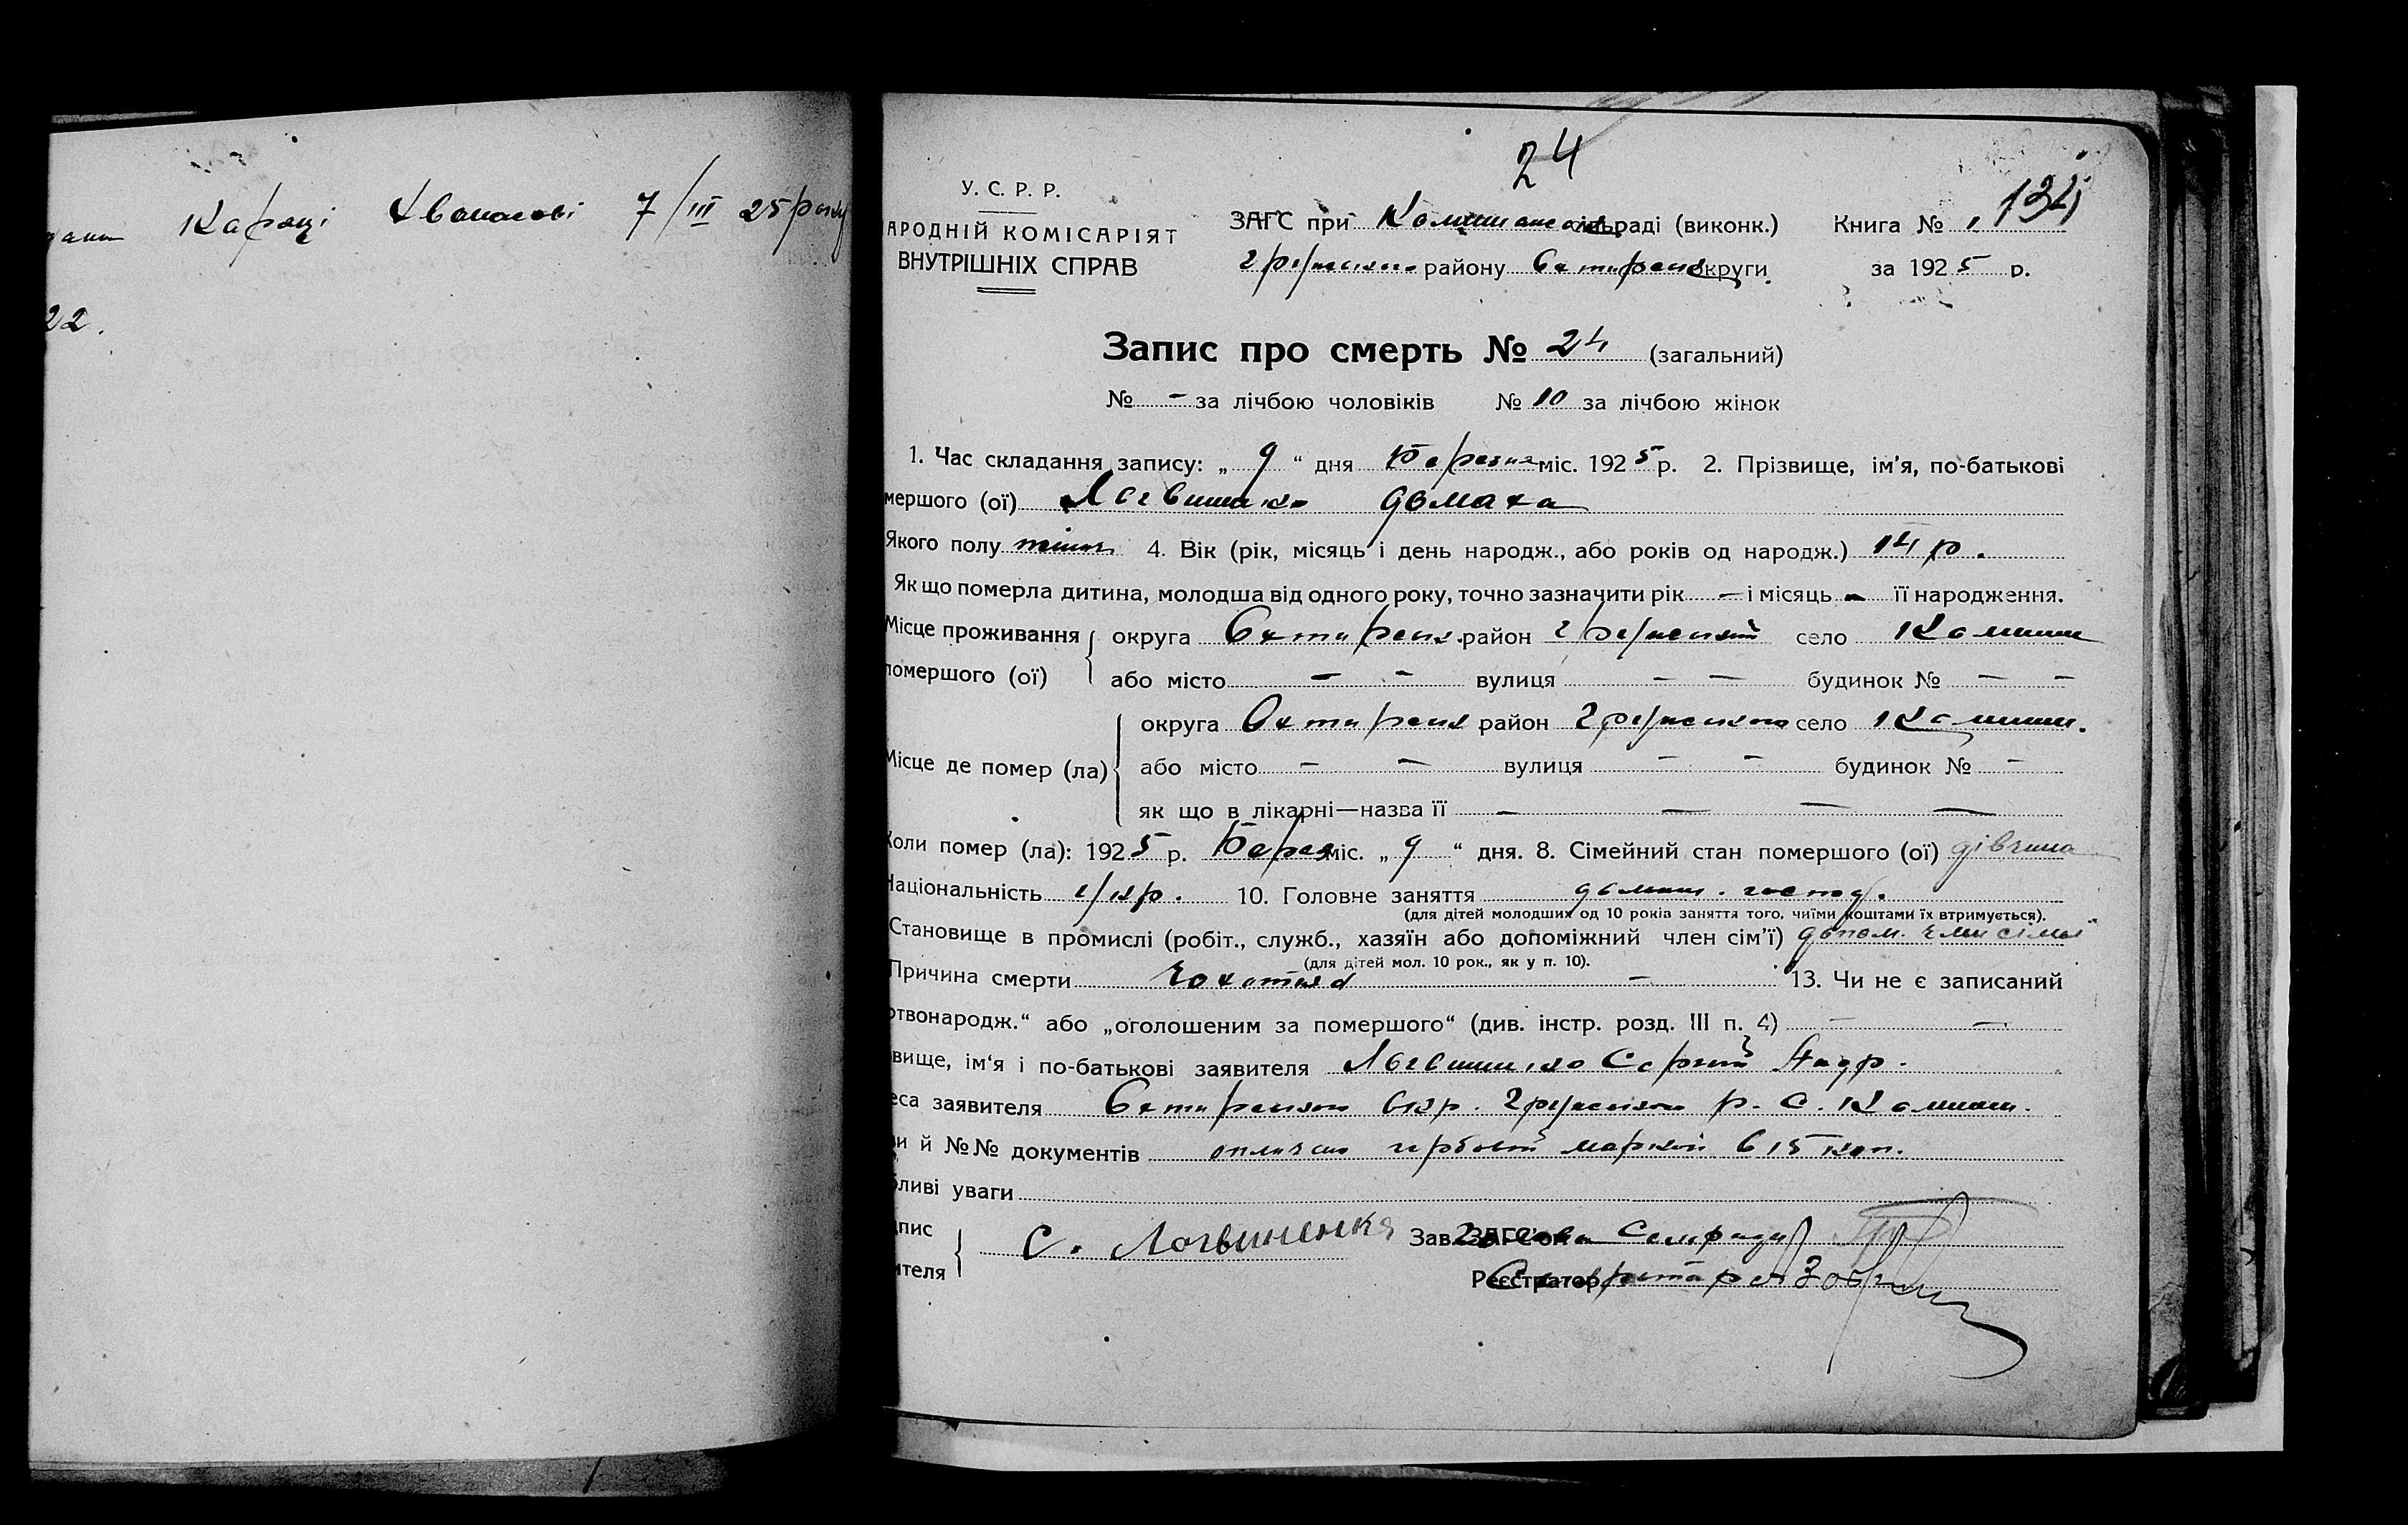 Караці Хвонасові 7/III 25 року
22.
24
У. С. Р. Р.
АРОДНІЙ КОМІСАРІЯТ
ВНУТРІШНІХ СПРАВ
ЗАГС при Комишанськ. раді (виконк.)
Грунського району Охтирськ округи.
Книга № 134
за 1925 р.
Запис про смерть № 24 (загальний)
№ - за лічбою чоловіків № 10 за лічбою жінок
1. Час складання запису: „ 9 “ дня Березня міс. 1925 р. 2. Прізвище, ім'я, по-батькові
мершого (ої) Логвиненко Домаха
Якого полу жіноч 4. Вік (рік, місяць і день народж., або років од народж.) 14 р.
Як що померла дитина, молодша від одного року, точно зазначити рік — і місяць — її народження.
Місце проживання
помершого (ої)
округа Охтирськ. район Грунський село Комиши
або місто — — вулиця — — будинок № — —
Місце де помер (ла)
округа Охтирськ район Грунського село Комиши.
або місто — — вулиця — — будинок № —
як що в лікарні—назва її — — — —
Коли помер (ла): 1925 р. Берез міс. „ 9 “ дня. 8. Сімейний стан помершого (ої) дівчина
Національність укр. 10. Головне заняття домаш. господ.
(для дітей молодших од 10 років заняття того, чиїми коштами їх втримується).
Становище в промислі (робіт., служб., хазяїн або допоміжний член сім'ї) допом. член сімьї
(для дітей мол. 10 рок., як у п. 10).
Причина смерти чохотка — 13. Чи не є записаний
ртвонародж.“ або „оголошеним за помершого“ (див. інстр. розд. III п. 4) — —
вище, ім‘я і по-батькові заявителя Логвиненко Сергій
еса заявителя Охтирської окр. Грунського р. с. Комиши.
и й №№ документів оплачено гербовой маркой в 15 коп.
бливі уваги
пис
ителя
С. Логвиненко
Зав. ЗАГС'ом Голова Сельради
Реєстратор Секретарь